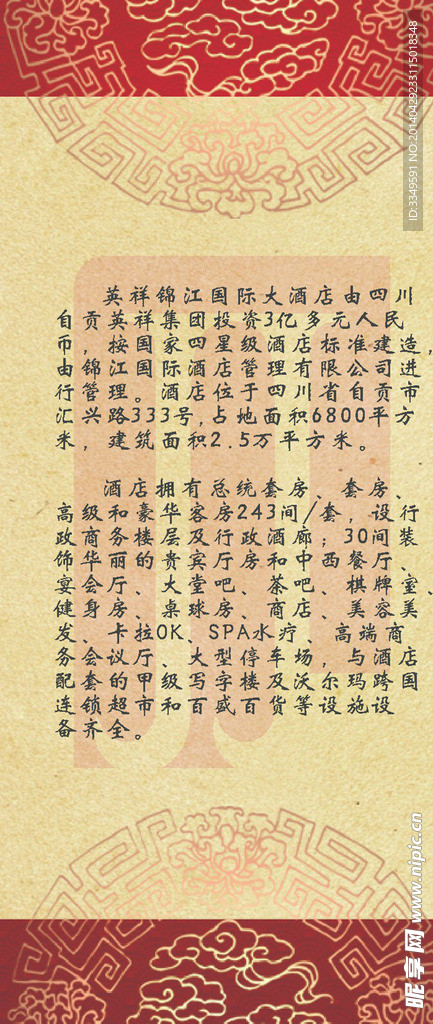 英祥锦江国际大酒店由四川
自贡英祥集团投资3亿多元人民
币，按国家四星级酒店标准建造，
由锦江国际酒店管理有限公司进
行管理。酒店位于四川省自贡市
汇兴路333号,占地面积6800平方
米，建筑面积2.5万平方米。
酒店拥有总统套房、套房、
高级和豪华客房243间/套，设行
政商务楼层及行政酒廊；30间装
饰华丽的贵宾厅房和中西餐厅、
宴会厅、大堂吧、茶吧、棋牌室、
健身房、桌球房、商店、美容美
发、卡拉OK、SPA水疗、高端商
务会议厅、大型停车场，与酒店
配套的甲级写字楼及沃尔玛跨国
连锁超市和百盛百货等设施设
备齐全。
ID:3349591 NO:20140429233115018348
昵享网 www.nipic.cn